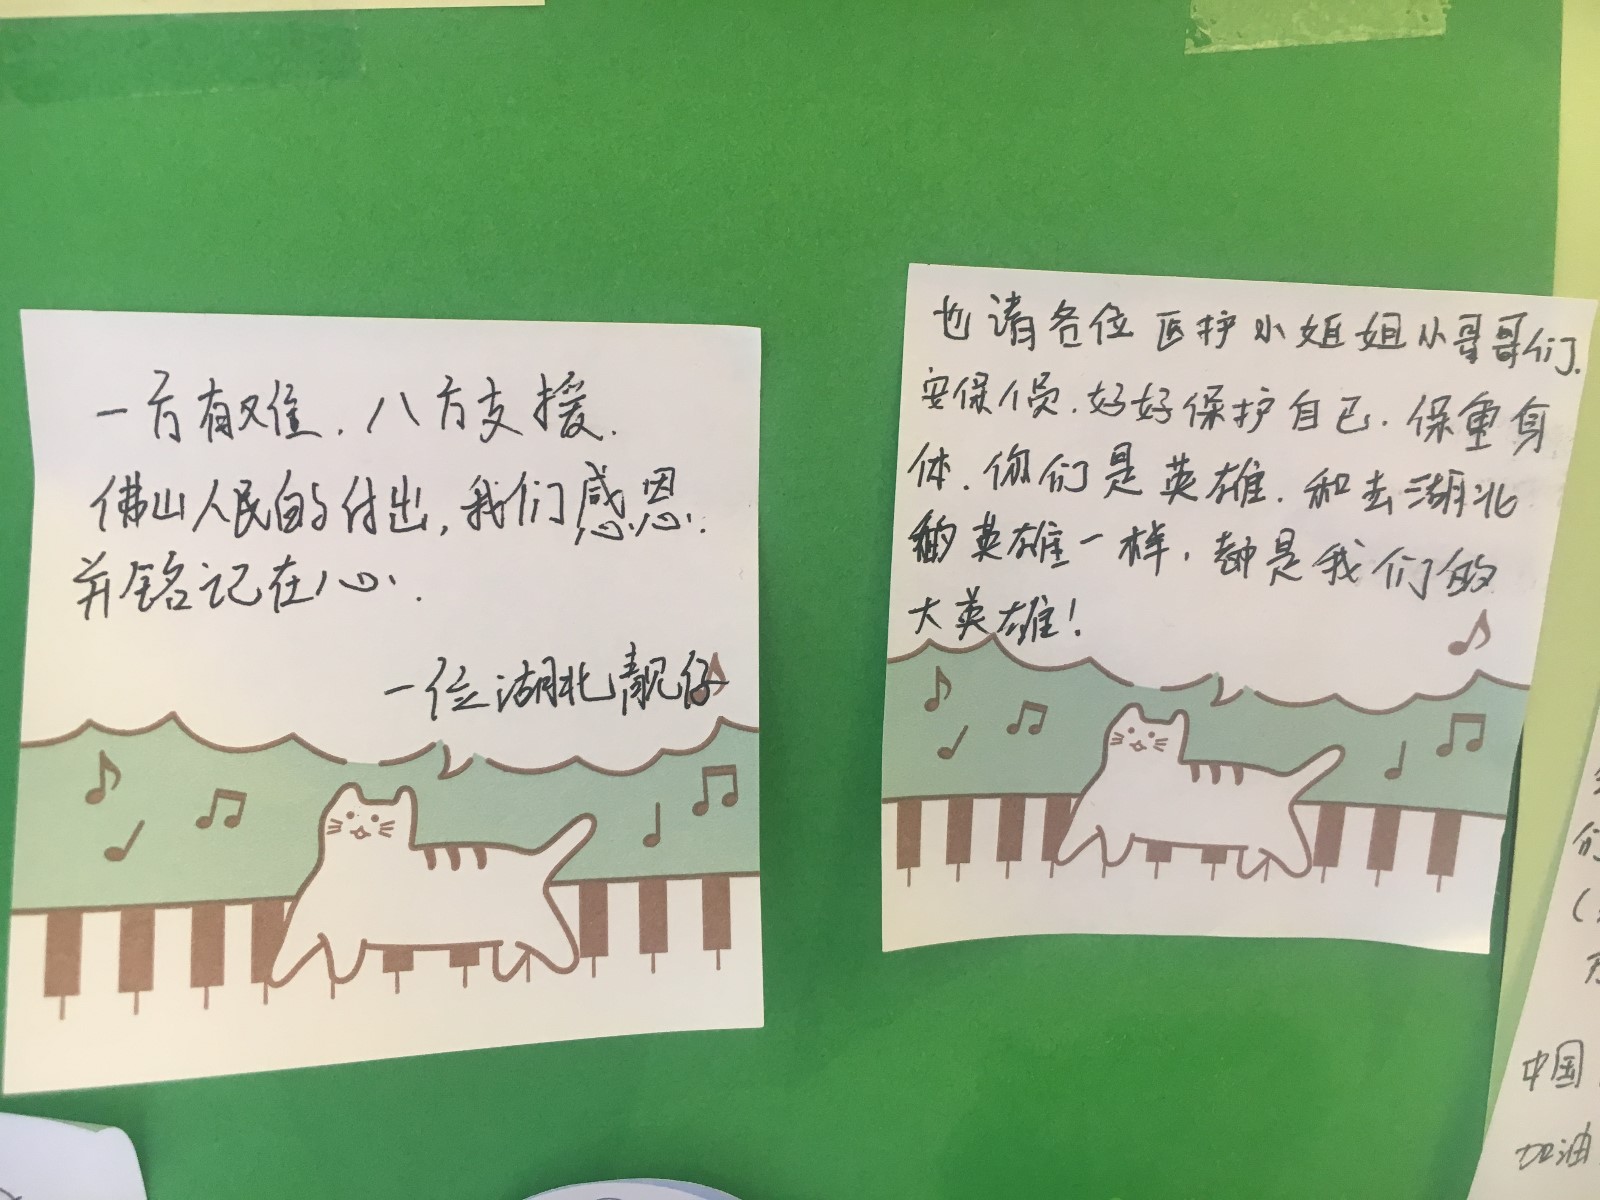 一方有难，八方支援.
佛山人民的付出,我们感恩.
并铭记在心.
一位湖北靓仔
也请各位医护小姐姐小哥哥们.
安保人员.好好保护自己.保重身
体.你们是英雄.和去湖北
的英雄一样.都是我们的
大英雄!
们
中国
加油